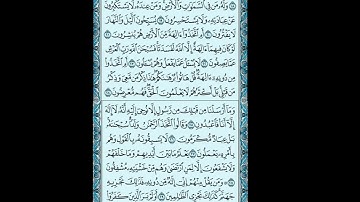 وَلَهُۥ مَن فِي ٱلسَّمَٰوَٰتِ وَٱلْأَرْضِ وَمَنْ عِندَهُۥ لَا يَسْتَكْبِرُونَ
عَنْ عِبَادَتِهِۦ وَلَا يَسْتَحْسِرُونَ ١٩ يُسَبِّحُونَ ٱلَّيْلَ وَٱلنَّهَارَ
لَا يَفْتُرُونَ ٢٠ أَمِ ٱتَّخَذُوٓا۟ ءَالِهَةً مِّنَ ٱلْأَرْضِ هُمْ يُنشِرُونَ ٢١
لَوْ كَانَ فِيهِمَآ ءَالِهَةٌ إِلَّا ٱللَّهُ لَفَسَدَتَا فَسُبْحَٰنَ ٱللَّهِ رَبِّ ٱلْعَرْشِ
عَمَّا يَصِفُونَ ٢٢ لَا يُسْـَٔلُ عَمَّا يَفْعَلُ وَهُمْ يُسْـَٔلُونَ ٢٣ أَمِ ٱتَّخَذُوا۟
مِن دُونِهِۦٓ ءَالِهَةً قُلْ هَاتُوا۟ بُرْهَٰنَكُمْ هَٰذَا ذِكْرُ مَن مَّعِيَ وَذِكْرُ
مَن قَبْلِي بَلْ أَكْثَرُهُمْ لَا يَعْلَمُونَ ٱلْحَقَّ فَهُم مُّعْرِضُونَ ٢٤
وَمَآ أَرْسَلْنَا مِن قَبْلِكَ مِن رَّسُولٍ إِلَّا نُوحِيٓ إِلَيْهِ أَنَّهُۥ لَآ إِلَٰهَ
إِلَّآ أَنَا۠ فَٱعْبُدُونِ ٢٥ وَقَالُوا۟ ٱتَّخَذَ ٱلرَّحْمَٰنُ وَلَدًا سُبْحَٰنَهُۥ
بَلْ عِبَادٌ مُّكْرَمُونَ ٢٦ لَا يَسْبِقُونَهُۥ بِٱلْقَوْلِ وَهُم
بِأَمْرِهِۦ يَعْمَلُونَ ٢٧ يَعْلَمُ مَا بَيْنَ أَيْدِيهِمْ وَمَا خَلْفَهُمْ
وَلَا يَشْفَعُونَ إِلَّا لِمَنِ ٱرْتَضَىٰ وَهُم مِّنْ خَشْيَتِهِۦ مُشْفِقُونَ ٢٨
وَمَن يَقُلْ مِنْهُمْ إِنِّيٓ إِلَٰهٌ مِّن دُونِهِۦ فَذَٰلِكَ نَجْزِيهِ
جَهَنَّمَ كَذَٰلِكَ نَجْزِي ٱلظَّٰلِمِينَ ٢٩ أَوَلَمْ يَرَ ٱلَّذِينَ كَفَرُوٓا۟